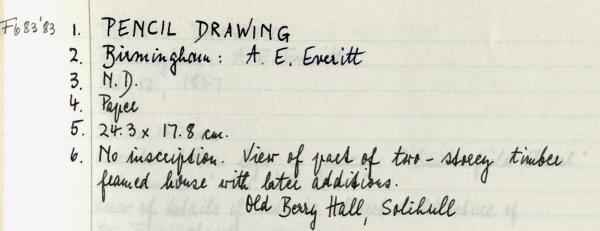 F683'83 1. PENCIL DRAWING
2. Birmingham: A. E. Everitt
3. N.D.
4. Paper
5. 24.3 x 17.8 cm.
6. No inscription. View of part of two-storey timber
framed house with later additions.
Old Berry Hall, Solihull